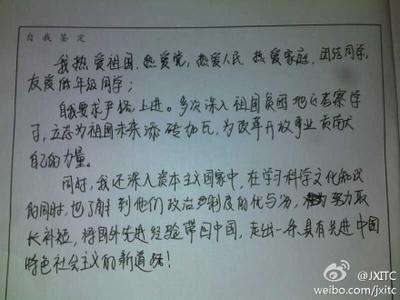 自我鉴定
我热爱祖国,热爱党,热爱人民 热爱家庭,团结同学,
友爱低年级同学;
自我要求严格,上进。多次深入祖国贫困地区考察学
习,立志为祖国未来添砖加瓦,为改革开放事业贡献
自己的力量。
同时,我还深入资本主义国家中,在学习科学文化知识
的同时,也了解到他们政治制度的优与劣,努力取
长补短,将国外先进经验带回中国,走出一条具有先进中国
特色社会主义的新道路!
@JXITC
weibo.com/jxitc